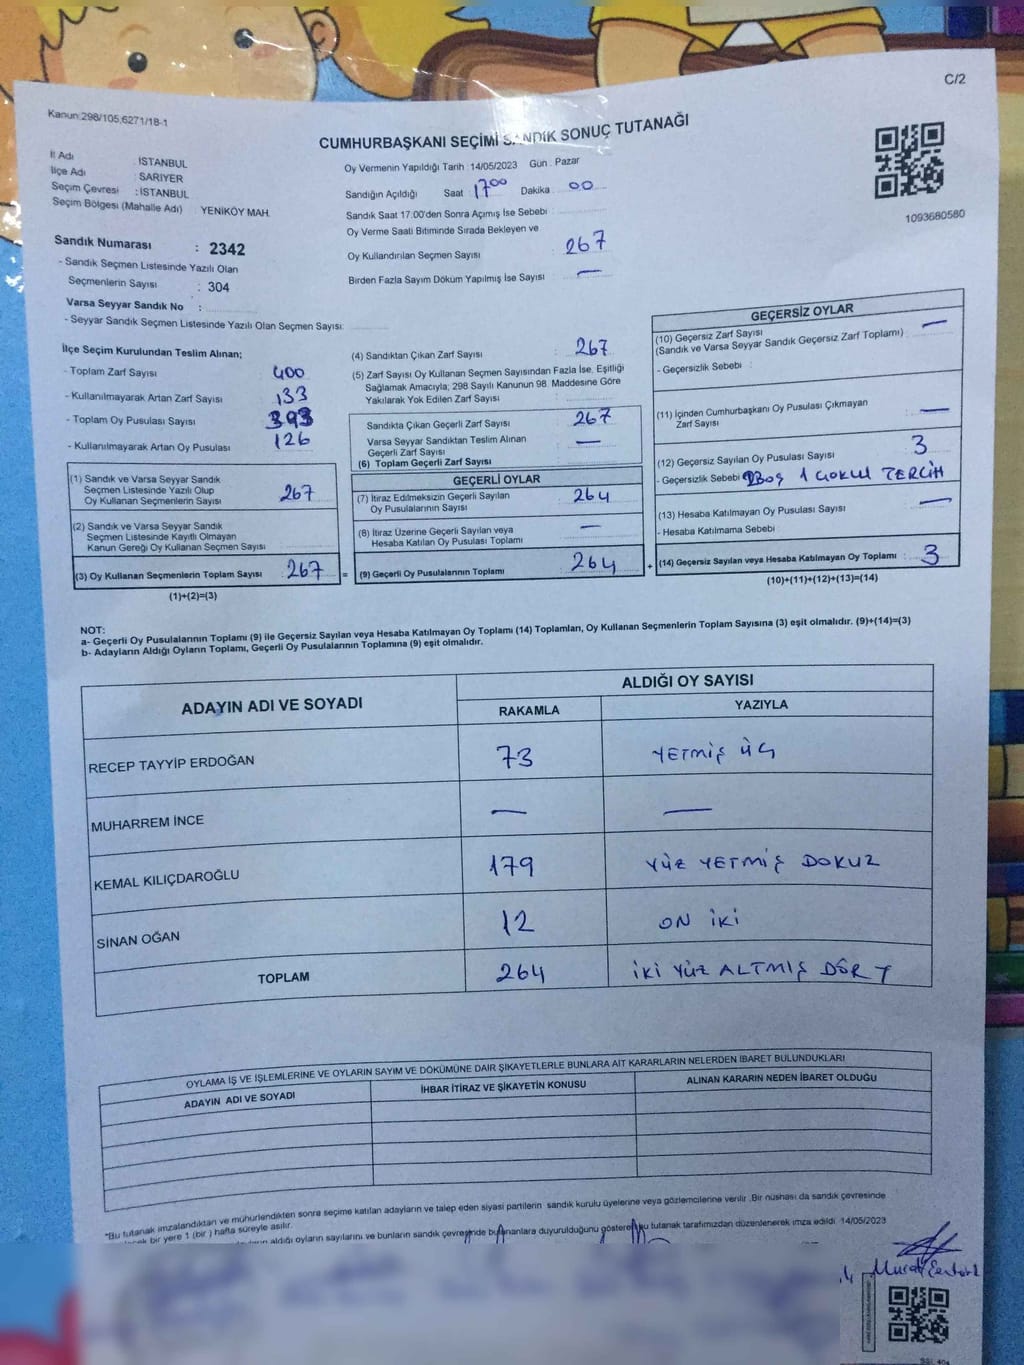 C/2
Kanun:298/105,6271/18-1
CUMHURBAŞKANI SEÇİMİ SANDIK SONUÇ TUTANAĞI
İl Adı : İSTANBUL
İlçe Adı : SARIYER
Seçim Çevresi : İSTANBUL
Seçim Bölgesi (Mahalle Adı) : YENİKÖY MAH.
Oy Vermenin Yapıldığı Tarih : 14/05/2023 Gün : Pazar
Sandığın Açıldığı Saat 17.00 Dakika 00
Sandık Saat 17.00'den Sonra Açımış İse Sebebi :
Oy Verme Saati Bitiminde Sırada Bekleyen ve
Oy Kullandırılan Seçmen Sayısı : 267
Birden Fazla Sayım Döküm Yapılmış İse Sayısı : —
1093680580
Sandık Numarası : 2342
- Sandık Seçmen Listesinde Yazılı Olan
Seçmenlerin Sayısı : 304
Varsa Seyyar Sandık No :
- Seyyar Sandık Seçmen Listesinde Yazılı Olan Seçmen Sayısı:
İlçe Seçim Kurulundan Teslim Alınan;
- Toplam Zarf Sayısı : 400
- Kullanılmayarak Artan Zarf Sayısı : 133
- Toplam Oy Pusulası Sayısı : 393
- Kullanılmayarak Artan Oy Pusulası : 126
(1) Sandık ve Varsa Seyyar Sandık
Seçmen Listesinde Yazılı Olup
Oy Kullanan Seçmenlerin Sayısı : 267
(2) Sandık ve Varsa Seyyar Sandık
Seçmen Listesinde Kayıtlı Olmayan
Kanun Gereği Oy Kullanan Seçmen Sayısı :
(3) Oy Kullanan Seçmenlerin Toplam Sayısı : 267
(1)+(2)=(3)
(4) Sandıktan Çıkan Zarf Sayısı : 267
(5) Zarf Sayısı Oy Kullanan Seçmen Sayısından Fazla İse, Eşitliği
Sağlamak Amacıyla; 298 Sayılı Kanunun 98. Maddesine Göre
Yakılarak Yok Edilen Zarf Sayısı :
Sandıkta Çıkan Geçerli Zarf Sayısı : 267
Varsa Seyyar Sandıktan Teslim Alınan
Geçerli Zarf Sayısı : —
(6) Toplam Geçerli Zarf Sayısı :
GEÇERLİ OYLAR
(7) İtiraz Edilmeksizin Geçerli Sayılan
Oy Pusulalarının Sayısı : 264
(8) İtiraz Üzerine Geçerli Sayılan veya
Hesaba Katılan Oy Pusulası Toplamı : —
= (9) Geçerli Oy Pusulalarının Toplamı : 264
GEÇERSİZ OYLAR
(10) Geçersiz Zarf Sayısı
(Sandık ve Varsa Seyyar Sandık Geçersiz Zarf Toplamı) : —
- Geçersizlik Sebebi :
(11) İçinden Cumhurbaşkanı Oy Pusulası Çıkmayan
Zarf Sayısı : —
(12) Geçersiz Sayılan Oy Pusulası Sayısı : 3
- Geçersizlik Sebebi : 2 BOŞ 1 ÇOKLU TERCİH
(13) Hesaba Katılmayan Oy Pusulası Sayısı : —
- Hesaba Katılmama Sebebi :
+ (14) Geçersiz Sayılan veya Hesaba Katılmayan Oy Toplamı : 3
(10)+(11)+(12)+(13)=(14)
NOT:
a- Geçerli Oy Pusulalarının Toplamı (9) ile Geçersiz Sayılan veya Hesaba Katılmayan Oy Toplamı (14) Toplamları, Oy Kullanan Seçmenlerin Toplam Sayısına (3) eşit olmalıdır. (9)+(14)=(3)
b- Adayların Aldığı Oyların Toplamı, Geçerli Oy Pusulalarının Toplamına (9) eşit olmalıdır.
ADAYIN ADI VE SOYADI ALDIĞI OY SAYISI
RAKAMLA YAZIYLA
RECEP TAYYİP ERDOĞAN 73 YETMİŞ ÜÇ
MUHARREM İNCE — —
KEMAL KILIÇDAROĞLU 179 YÜZ YETMİŞ DOKUZ
SİNAN OĞAN 12 ON İKİ
TOPLAM 264 İKİ YÜZ ALTMIŞ DÖRT
OYLAMA İŞ VE İŞLEMLERİNE VE OYLARIN SAYIM VE DÖKÜMÜNE DAİR ŞİKAYETLERLE BUNLARA AİT KARARLARIN NELERDEN İBARET BULUNDUKLARI
ADAYIN ADI VE SOYADI İHBAR İTİRAZ VE ŞİKAYETİN KONUSU ALINAN KARARIN NEDEN İBARET OLDUĞU
*Bu tutanak imzalandıktan ve mühürlendikten sonra seçime katılan adayların ve talep eden siyasi partilerin sandık kurulu üyelerine veya gözlemcilerine verilir. Bir nüshası da sandık çevresinde
bir yere 1 (bir) hafta süreyle asılır.
aldığı oyların sayılarını ve bunların sandık çevresinde bulunanlara duyurulduğunu gösteren bu tutanak tarafımızdan düzenlenerek imza edildi. 14/05/2023
Murat